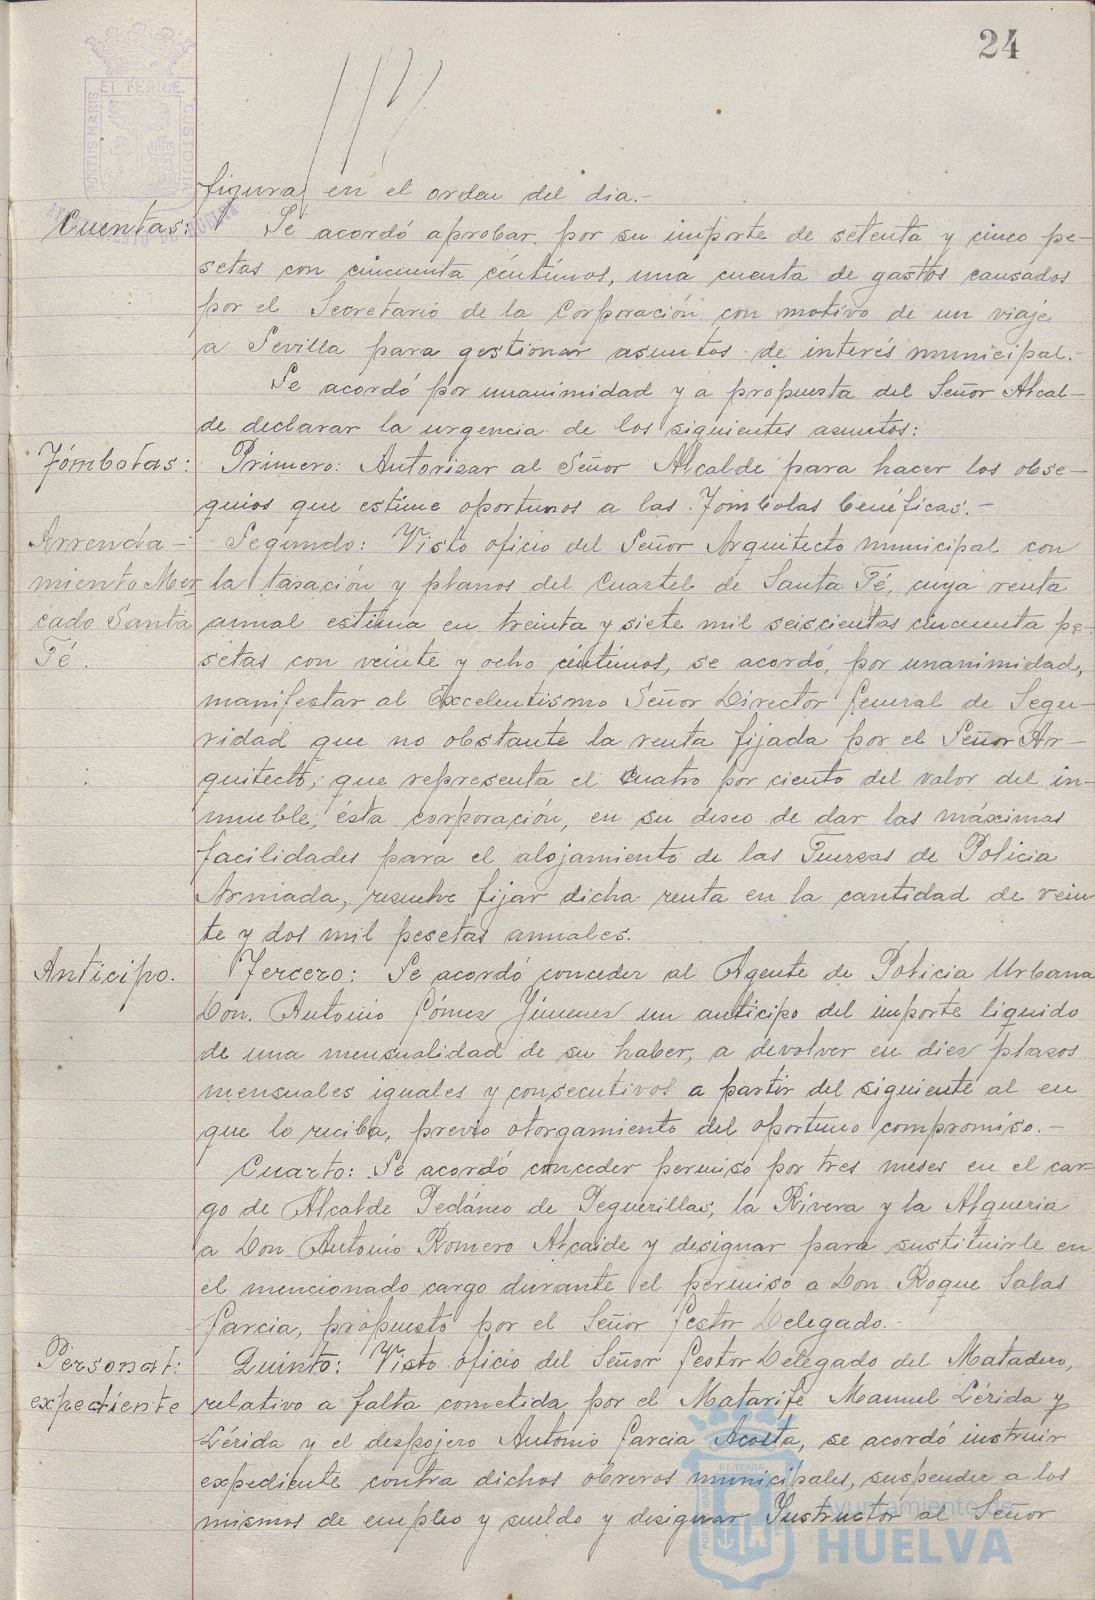 24
figura en el orden del dia.-
Cuentas:
Se acordó aprobar por su importe de setenta y cinco pe-
setas con cincuenta céntimos, una cuenta de gastos causados
por el Secretario de la Corporación con motivo de un viaje
a Sevilla para gestionar asuntos de interés municipal.-
Se acordó por unanimidad y a propuesta del Señor Alcal-
de declarar la urgencia de los siguientes asuntos:
Tómbolas:
Primero: Autorizar al Señor Alcalde para hacer los obse-
quios que estime oportunos a las Tombolas benéficas.-
Arrenda-
miento Mer
cado Santa
Fé.
Segundo: Visto oficio del Señor Arquitecto municipal con
la tasación y planos del Cuartel de Santa Fé, cuya renta
anual estima en treinta y siete mil seiscientas cincuenta pe-
setas con veinte y ocho céntimos, se acordó, por unanimidad,
manifestar al Excelentismo Señor Director General de Segu-
ridad que no obstante la renta fijada por el Señor Ar-
quitecto, que representa el cuatro por ciento del valor del in-
mueble, ésta corporación, en su deseo de dar las máximas
facilidades para el alojamiento de las Fuerzas de Policia
Armada, resuelve fijar dicha renta en la cantidad de vein-
te y dos mil pesetas anuales.
Anticipo.
Tercero: Se acordó conceder al Agente de Policia Urbana
Don Antonio Gómez Jimenez un anticipo del importe liquido
de una mensualidad de su haber, a devolver en diez plazos
mensuales iguales y consecutivos a partir del siguiente al en
que lo reciba, previo otorgamiento del oportuno compromiso.-
Cuarto: Se acordó conceder permiso por tres meses en el car-
go de Alcalde Pedáneo de Peguerillas, la Rivera y la Alqueria
a Don Antonio Romero Alcaide y designar para sustituirle en
el mencionado cargo durante el permiso a Don Roque Salas
Garcia, propuesto por el Señor Gestor Delegado.-
Personal:
expediente
Quinto: Visto oficio del Señor Gestor Delegado del Matadero,
relativo a falta cometida por el Matarife Manuel Lérida y
Lérida y el despojero Antonio Garcia Acosta, se acordó instruir
expediente contra dichos obreros municipales, suspender a los
mismos de empleo y sueldo y designar Instructor al Señor
Ayuntamiento de
HUELVA